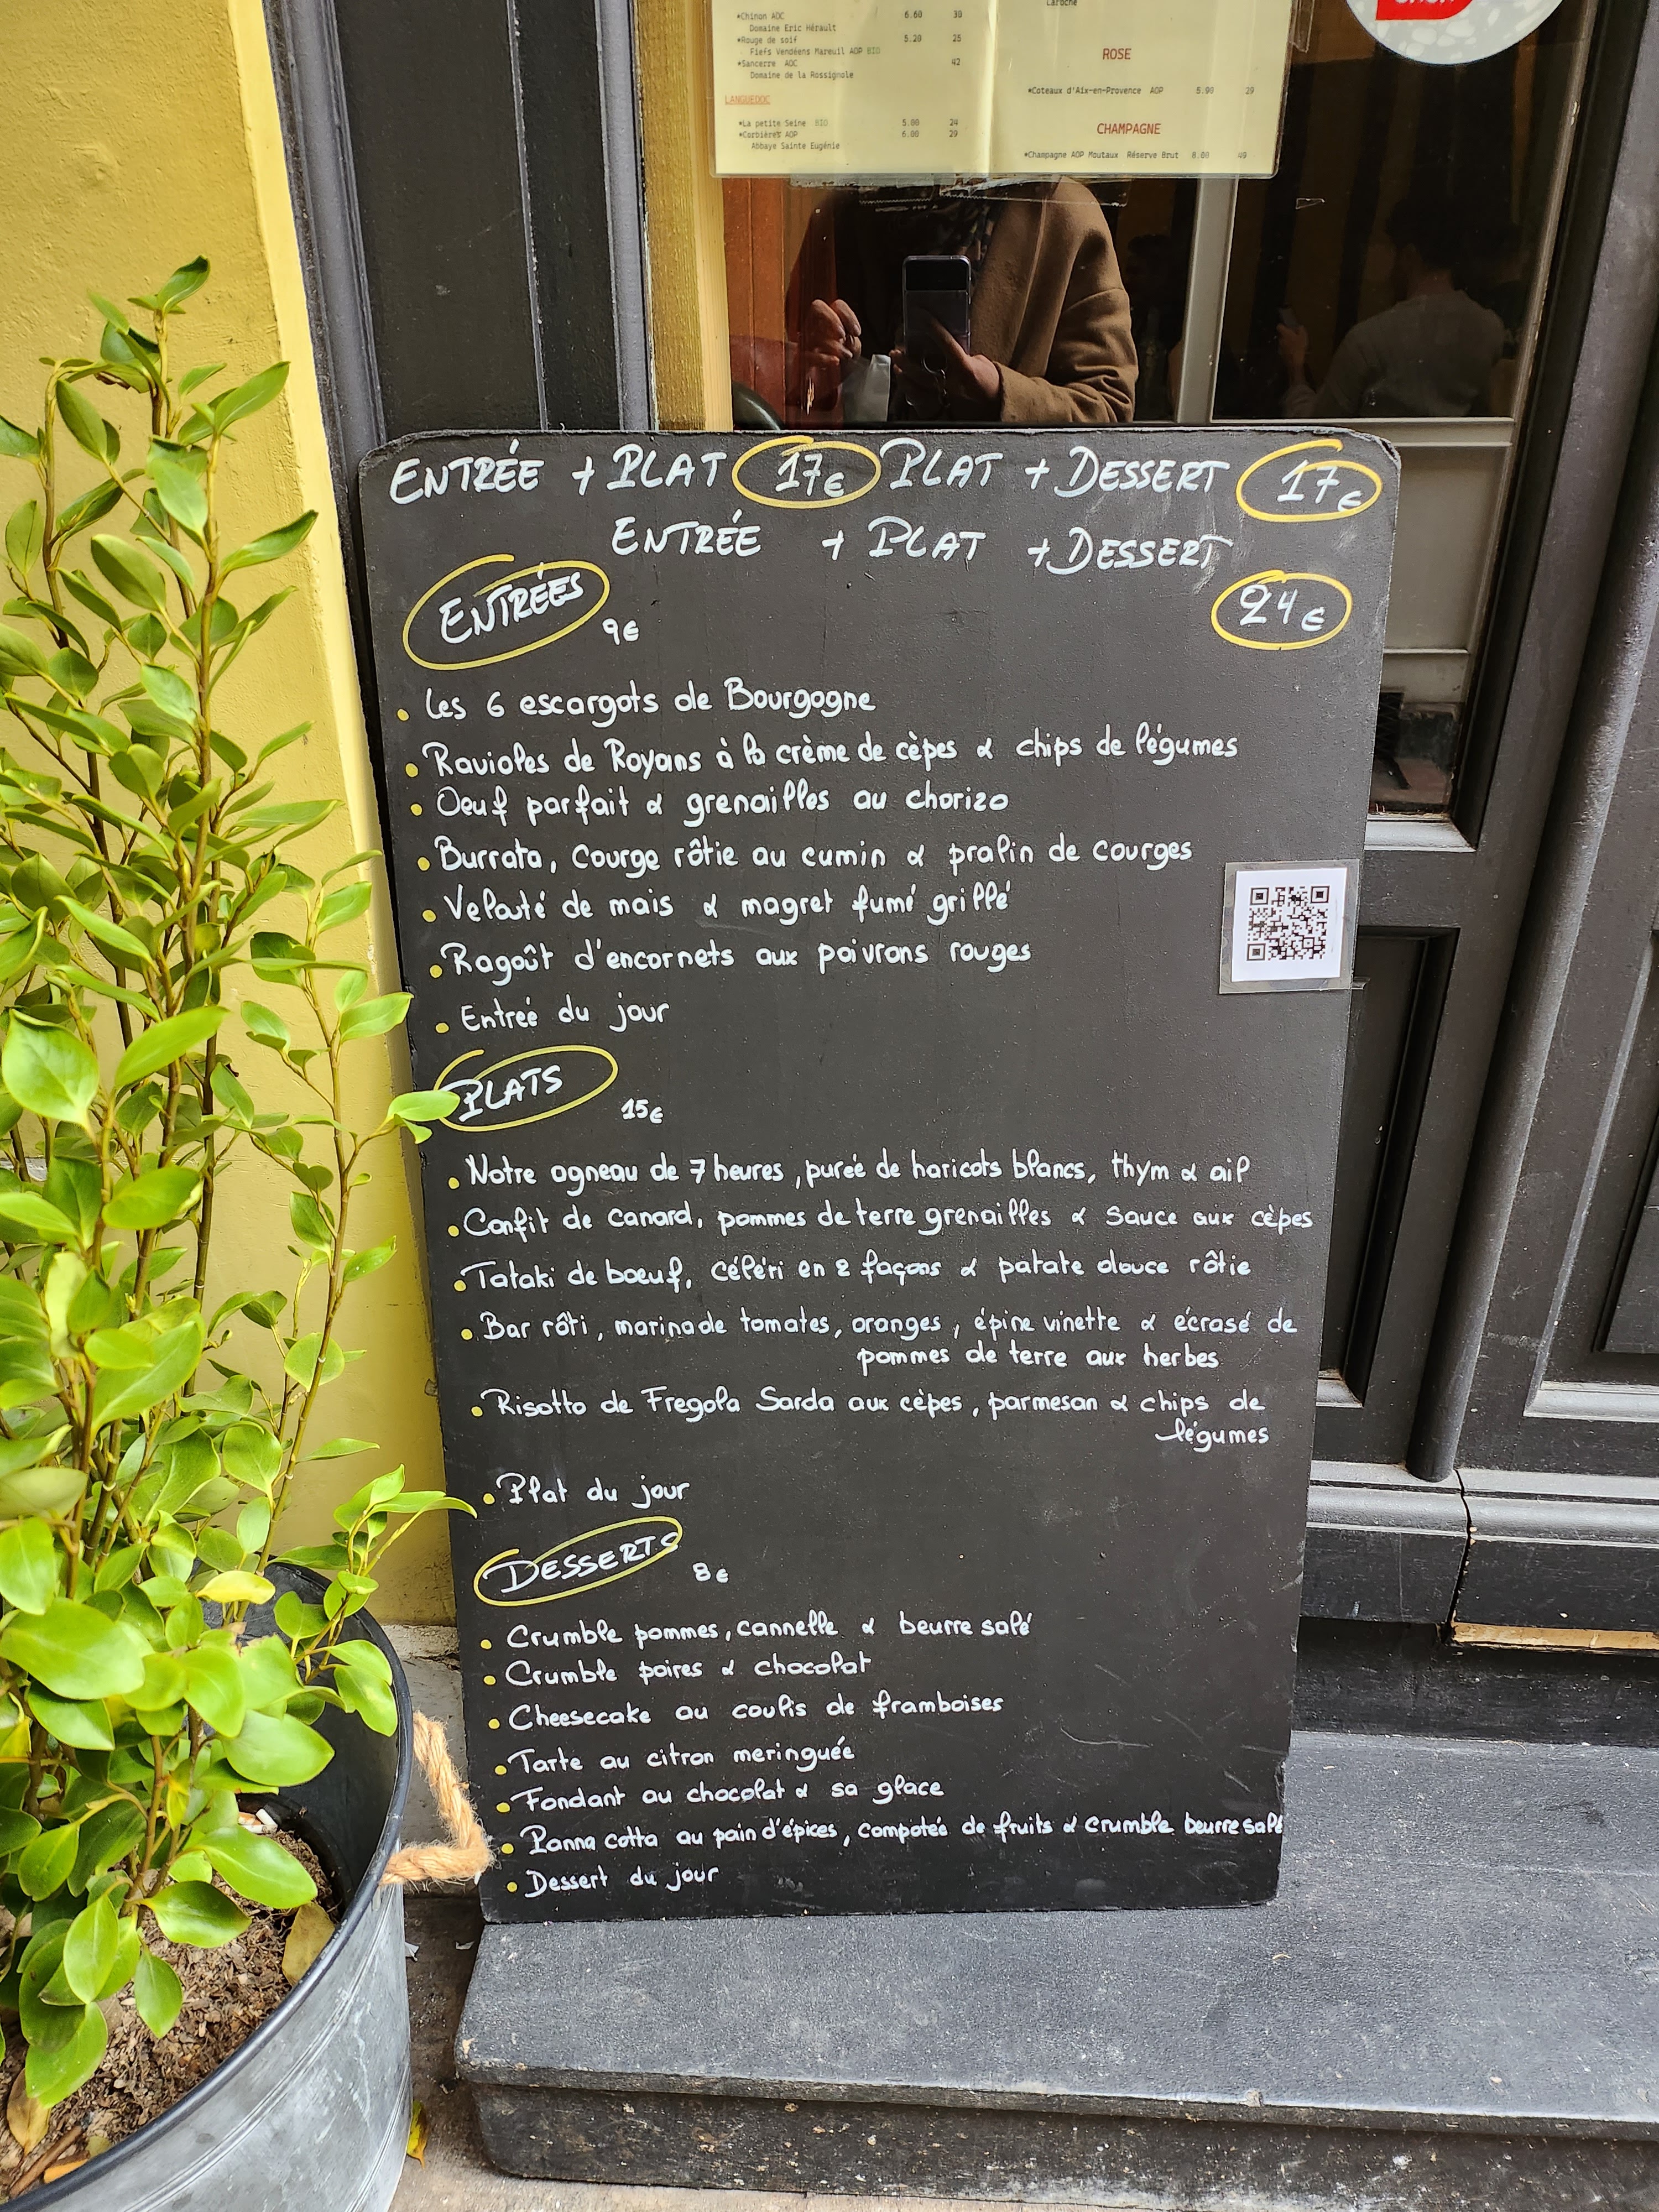 *Chinon AOC 6.60 30
Domaine Eric Hérault
*Rouge de soif 5.20 25
Fiefs Vendéens Mareuil AOP BIO
*Sancerre AOC 42
Domaine de la Rossignole
LANGUEDOC
*La petite Seine BIO 5.00 24
*Corbières AOP 6.00 29
Abbaye Sainte Eugénie
Laroche
ROSE
*Coteaux d'Aix-en-Provence AOP 5.90 29
CHAMPAGNE
*Champagne AOP Moutaux Réserve Brut 8.00 49
ENTRÉE + PLAT 17€ PLAT + DESSERT 17€
ENTRÉE + PLAT + DESSERT
24€
ENTRÉES 9€
• Les 6 escargots de Bourgogne
• Ravioles de Royans à la crème de cèpes & chips de légumes
• Oeuf parfait & grenailles au chorizo
• Burrata, Courge rôtie au cumin & pralin de courges
• Velouté de mais & magret fumé grillé
• Ragoût d'encornets aux poivrons rouges
• Entreé du jour
PLATS 15€
• Notre agneau de 7 heures, pureé de haricots blancs, thym & ail
• Confit de canard, pommes de terre grenailles & sauce aux cèpes
• Tataki de bœuf, céléri en 2 façons & patate douce rôtie
• Bar rôti, marinade tomates, oranges, épine vinette & écrasé de
pommes de terre aux herbes
• Risotto de Fregola Sarda aux cèpes, parmesan & chips de
légumes
• Plat du jour
DESSERTS 8€
• Crumble pommes, cannelle & beurre salé
• Crumble poires & chocolat
• Cheesecake au coulis de framboises
• Tarte au citron meringuée
• Fondant au chocolat & sa glace
• Panna cotta au pain d'épices, compoteé de fruits & crumble beurre salé
• Dessert du jour